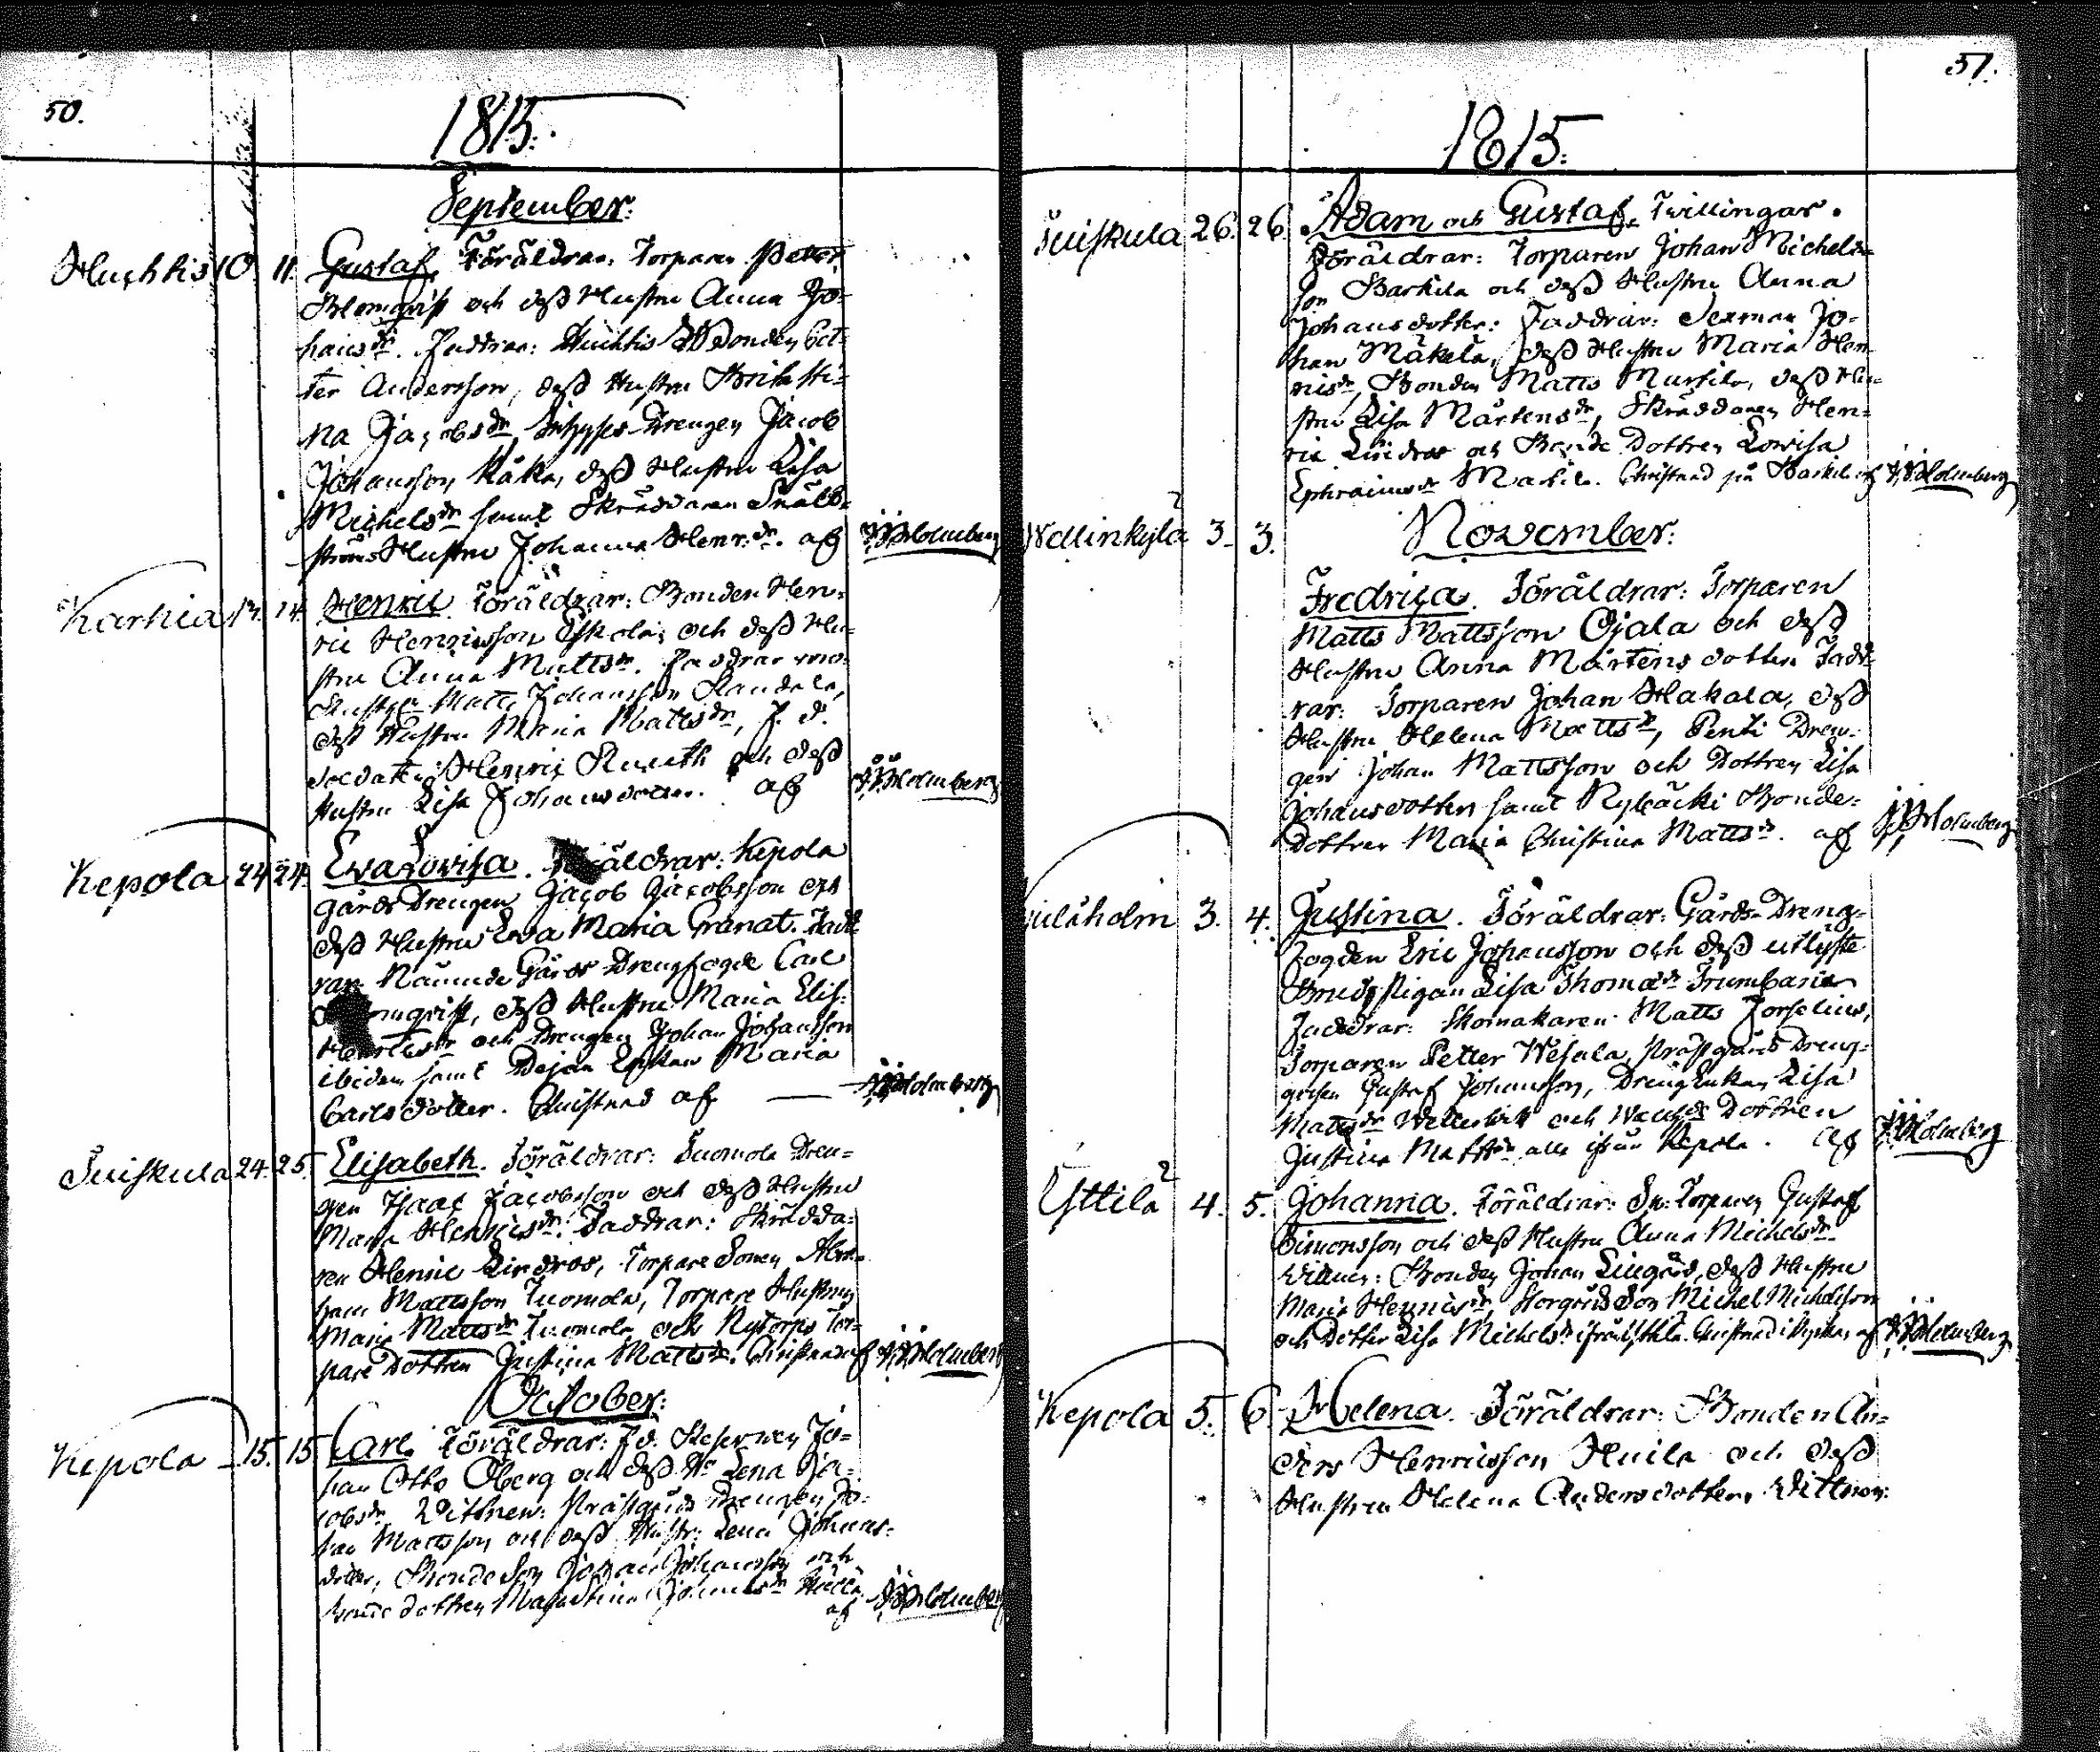 50.
1815.
September.
Huchtis 10. 11. Gustaf. Föräldrar: Torparen Petter
Blomqvist och dess Hustru Anna Jo-
hansdr. Faddrar: Huchtis Bonden Pet-
ter Andersson, dess Hustru Brita Sti-
na Jacobsdr, Drengen Jacob
Johansson Kåka, dess Hustru Lisa
Michelsdr samt Skräddaren Snäll-
ströms Hustru Johanna Henr:dr. af JJHolmberg
Karhia 13. 14. Henric. Föräldrar: Bonden Hen-
ric Henricsson Eskola, och dess Hu-
stru Anna Mattsdr. Faddrar
Matts Johansson
dess Hustru Maria Mattsdr, f. d.
Soldaten Henric och dess
Hustru Lisa Johansdotter. af JJHolmberg
Kepola 24 24. Eva Lovisa. Föräldrar: Kepola
gårds Drengen Jacob Jacobsson och
dess Hustru Eva Maria Granat. Fadd-
rar: Gårds Drengfogde Carl
dess Hustru Maria Elis:
och Drengen Johan Johansson
ibidem samt Dejan Enkan Maria
Carlsdotter. Christnad af — JJHolmberg
Suiskula 24. 25. Elisabeth. Föräldrar: Tuomola Dren-
gen Isaac Jacobsson och dess Hustru
Maria Henricsdr. Faddrar: Skrädda-
ren Henric Lindros, Torpare Sonen Abra-
ham Mattsson Tuomola, Torpare Hustrun
Maria Mattsdr Tuomola och Nytorps Tor-
pare Dottren Justina Mattsdr. Christnad af JJHolmberg
October:
Kepola 15. 15. Carl. Föräldrar: f.d. Jo-
han Otto Öberg och dess Hu Lena Ja-
cobsdr. Vittnen: Prästgårds Drengen Jo-
han Mattsson och dess Hustr: Lena Johans-
dotter, Bonde Son Johan Johansson och
Bonde dottren Maja Stina Johansdr
af JJHolmberg
51.
1815.
Suiskula 26. 26. Adam och Gustaf, Tvillingar.
Föräldrar: Torparen Johan Michels-
son Barkila och dess Hustru Anna
Johansdotter: Faddrar: Sexman Jo-
han Mäkelä, dess Hustru Maria Hen-
ricsdr, Bonden Matts Murkila, dess Hu-
stru Lisa Mårtensdr, Skräddaren Hen-
ric Lindros och Bonde Dottren Lovisa
Ephraimsdr. Christnad på Barkila af JJHolmberg
November:
Wallinkylä 3. 3.
Fredrica. Föräldrar: Torparen
Matts Mattsson Ojala och dess
Hustru Anna Mårtensdotter Fadd-
rar: Torparen Johan Hakala, dess
Hustru Helena Mattsdr, Penti Dren-
gen Johan Mattsson och Dottren Lisa
Johansdotter samt Rybäcki Bonde-
Dottren Maria Christina Mattsdr. af JJHolmberg
3. 4. Justina. Föräldrar: Gårds-Dreng-
Fogden Eric Johansson och dess utlyste
Brud, Pigan Lisa Thomædr
Faddrar: Skomakaren Matts Forselius,
Torparen Petter Wesala, Prästgårds Dreng-
gosen Gustaf Johansson, Dreng Enkan Lisa
Mattsdr och Dottren
Justina Mattsdr alla ifrån Kepola. af JJHolmberg
Yttilä 4. 5. Johanna. Föräldrar: Torparen Gustaf
Simonsson och dess Hustru Anna Michelsdr
Vittnen: Bonden Johan Lingård, dess Hustru
Maria Henricsdr, Storgårds Son Michel Michelsson
och Dotter Lisa Michelsdr ifrån Yttilä. Christnad i Kyrkan af JJHolmberg
Kepola 5. 6. Helena. Föräldrar: Bonden An-
ders Henricsson Huila och dess
Hustru Helena Andersdotter. Vittnen: